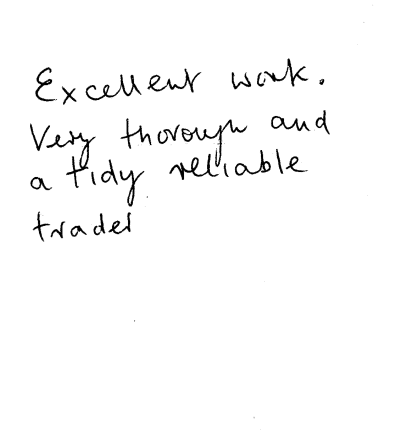 Excellent work.
Very thorough and
a tidy reliable
trader